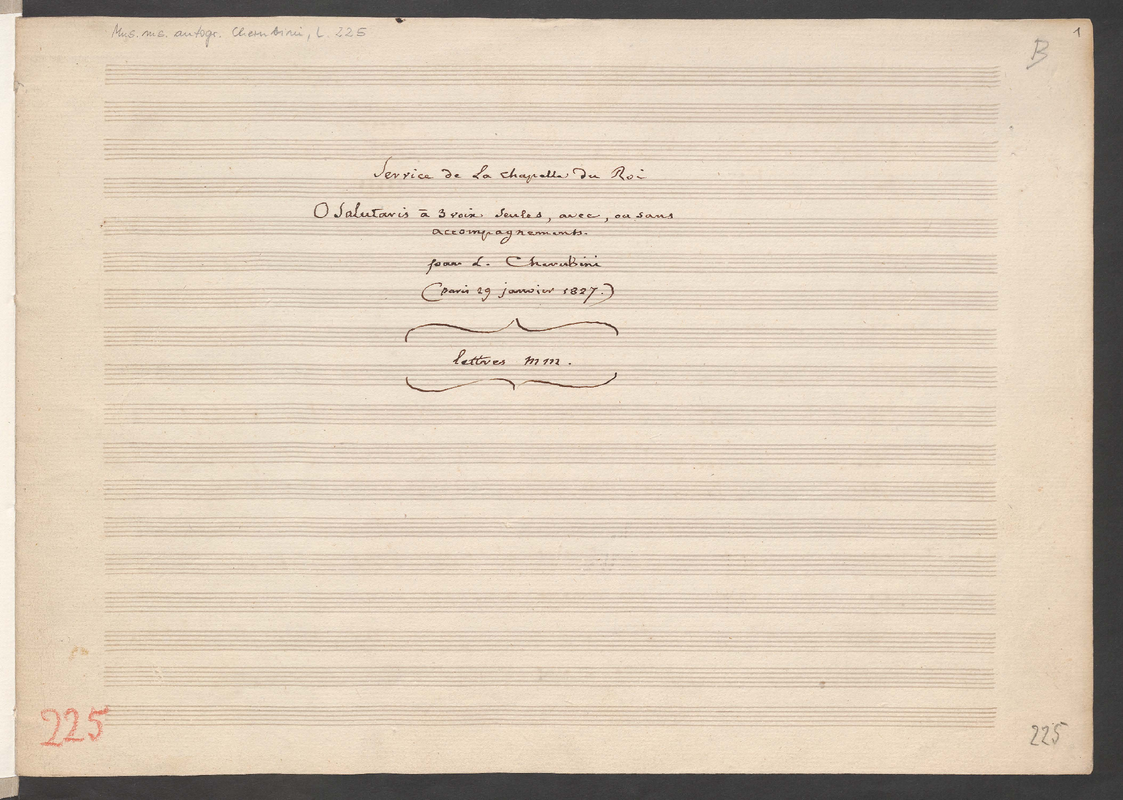 Mus. ms. autogr. Cherubini, L. 225
1
B
Service de La chapelle du Roi
O Salutaris à 3 voix seules, avec, ou sans
accompagnements.
par L. Cherubini
(Paris 29 janvier 1827.)
lettres mm.
225
225